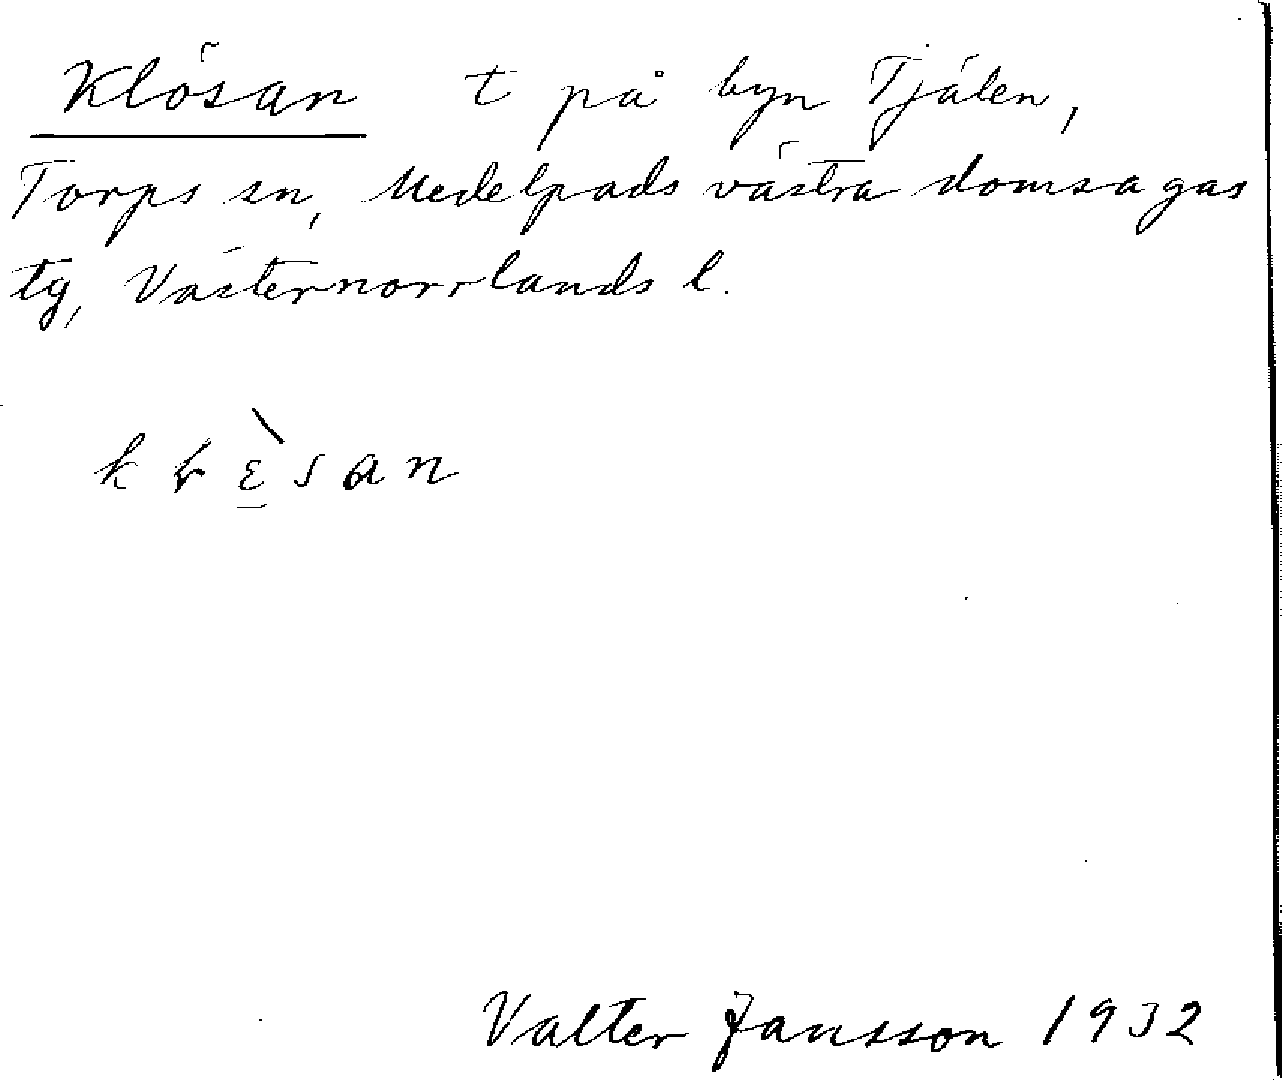 Klösan t på byn Tjälen,
Torps sn, Medelpads västra domsagas
tg, Västernorrlands l.
Valter Jansson 1932